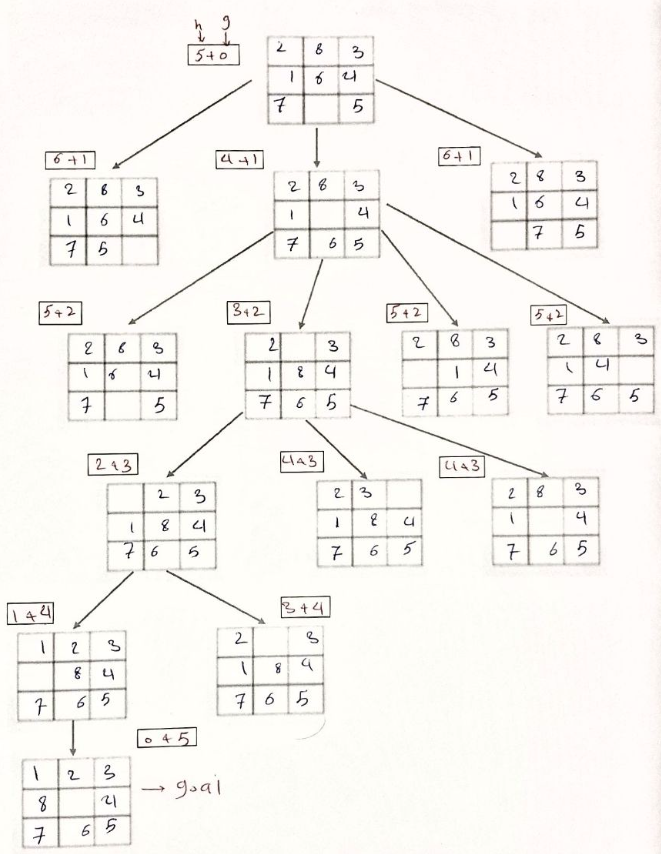 h g
5+0
2 8 3
1 6 4
7 5
6+1
2 8 3
1 6 4
7 5
4+1
2 8 3
1 4
7 6 5
6+1
2 8 3
1 6 4
7 5
5+2
2 8 3
1 6 4
7 5
3+2
2 3
1 8 4
7 6 5
5+2
2 8 3
1 4
7 6 5
5+2
2 8 3
1 4
7 6 5
2+3
2 3
1 8 4
7 6 5
4+3
2 3
1 8 4
7 6 5
4+3
2 8 3
1 4
7 6 5
1+4
1 2 3
8 4
7 6 5
3+4
2 3
1 8 4
7 6 5
0+5
1 2 3
8 4
7 6 5
→ goal